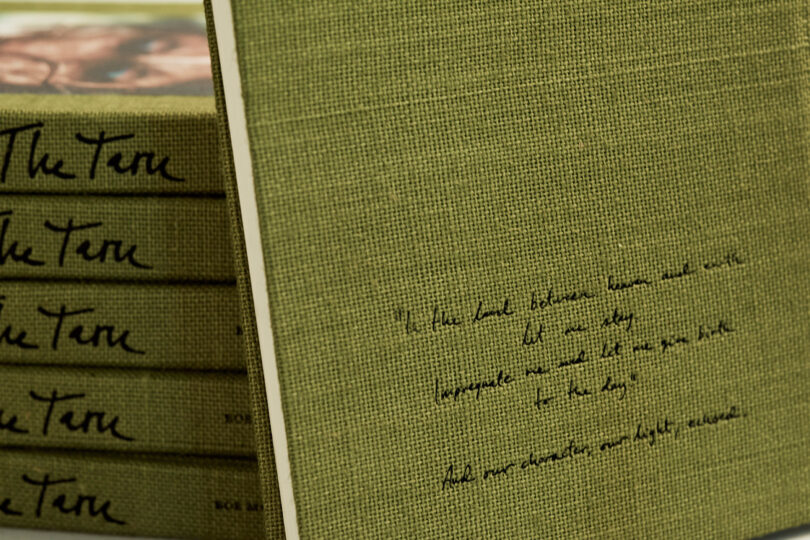 The Taru
The Taru
The Taru
The Taru
The Taru
BOE
BOE MO
"In the land between heaven and earth
let me stay
Impregnate me and let me give birth
to the day"
And our character, our light, echoed.